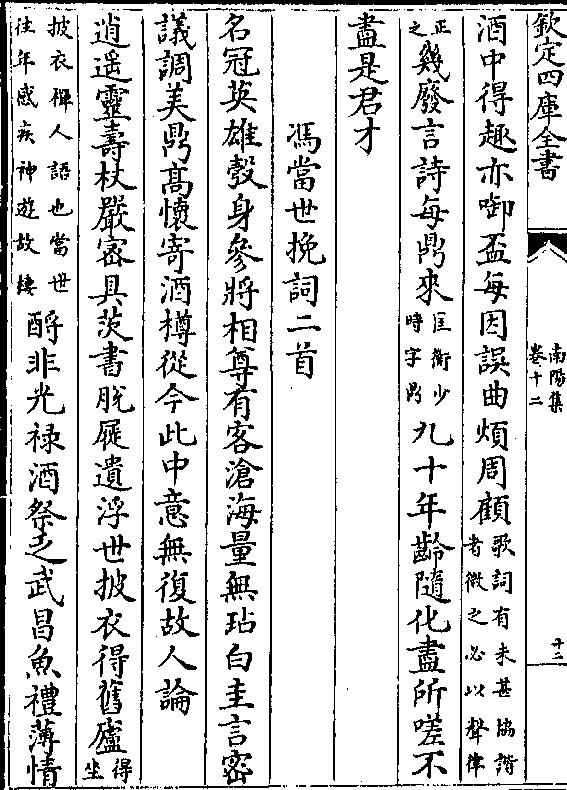 欽定四庫全書
南陽集
卷十二
十二
酒中得趣亦啣盃每因誤曲煩周顧歌詞有未甚協諧
者微之必以聲律
正
之幾廢言詩每鼎來匡衡少
時字鼎九十年齡隨化盡所嗟不
盡是君才
馮當世挽詞二首
名冠英雄彀身參將相尊有客滄海量無玷白圭言密
議調美鼎髙懷寄酒樽從今此中意無復故人論
逍遥靈壽杖嚴宻具茨書脱屣遺浮世披衣得舊廬得
坐
披衣稚人語也當世
往年感疾神遊故棲酹非光禄酒祭乏武昌魚禮薄情